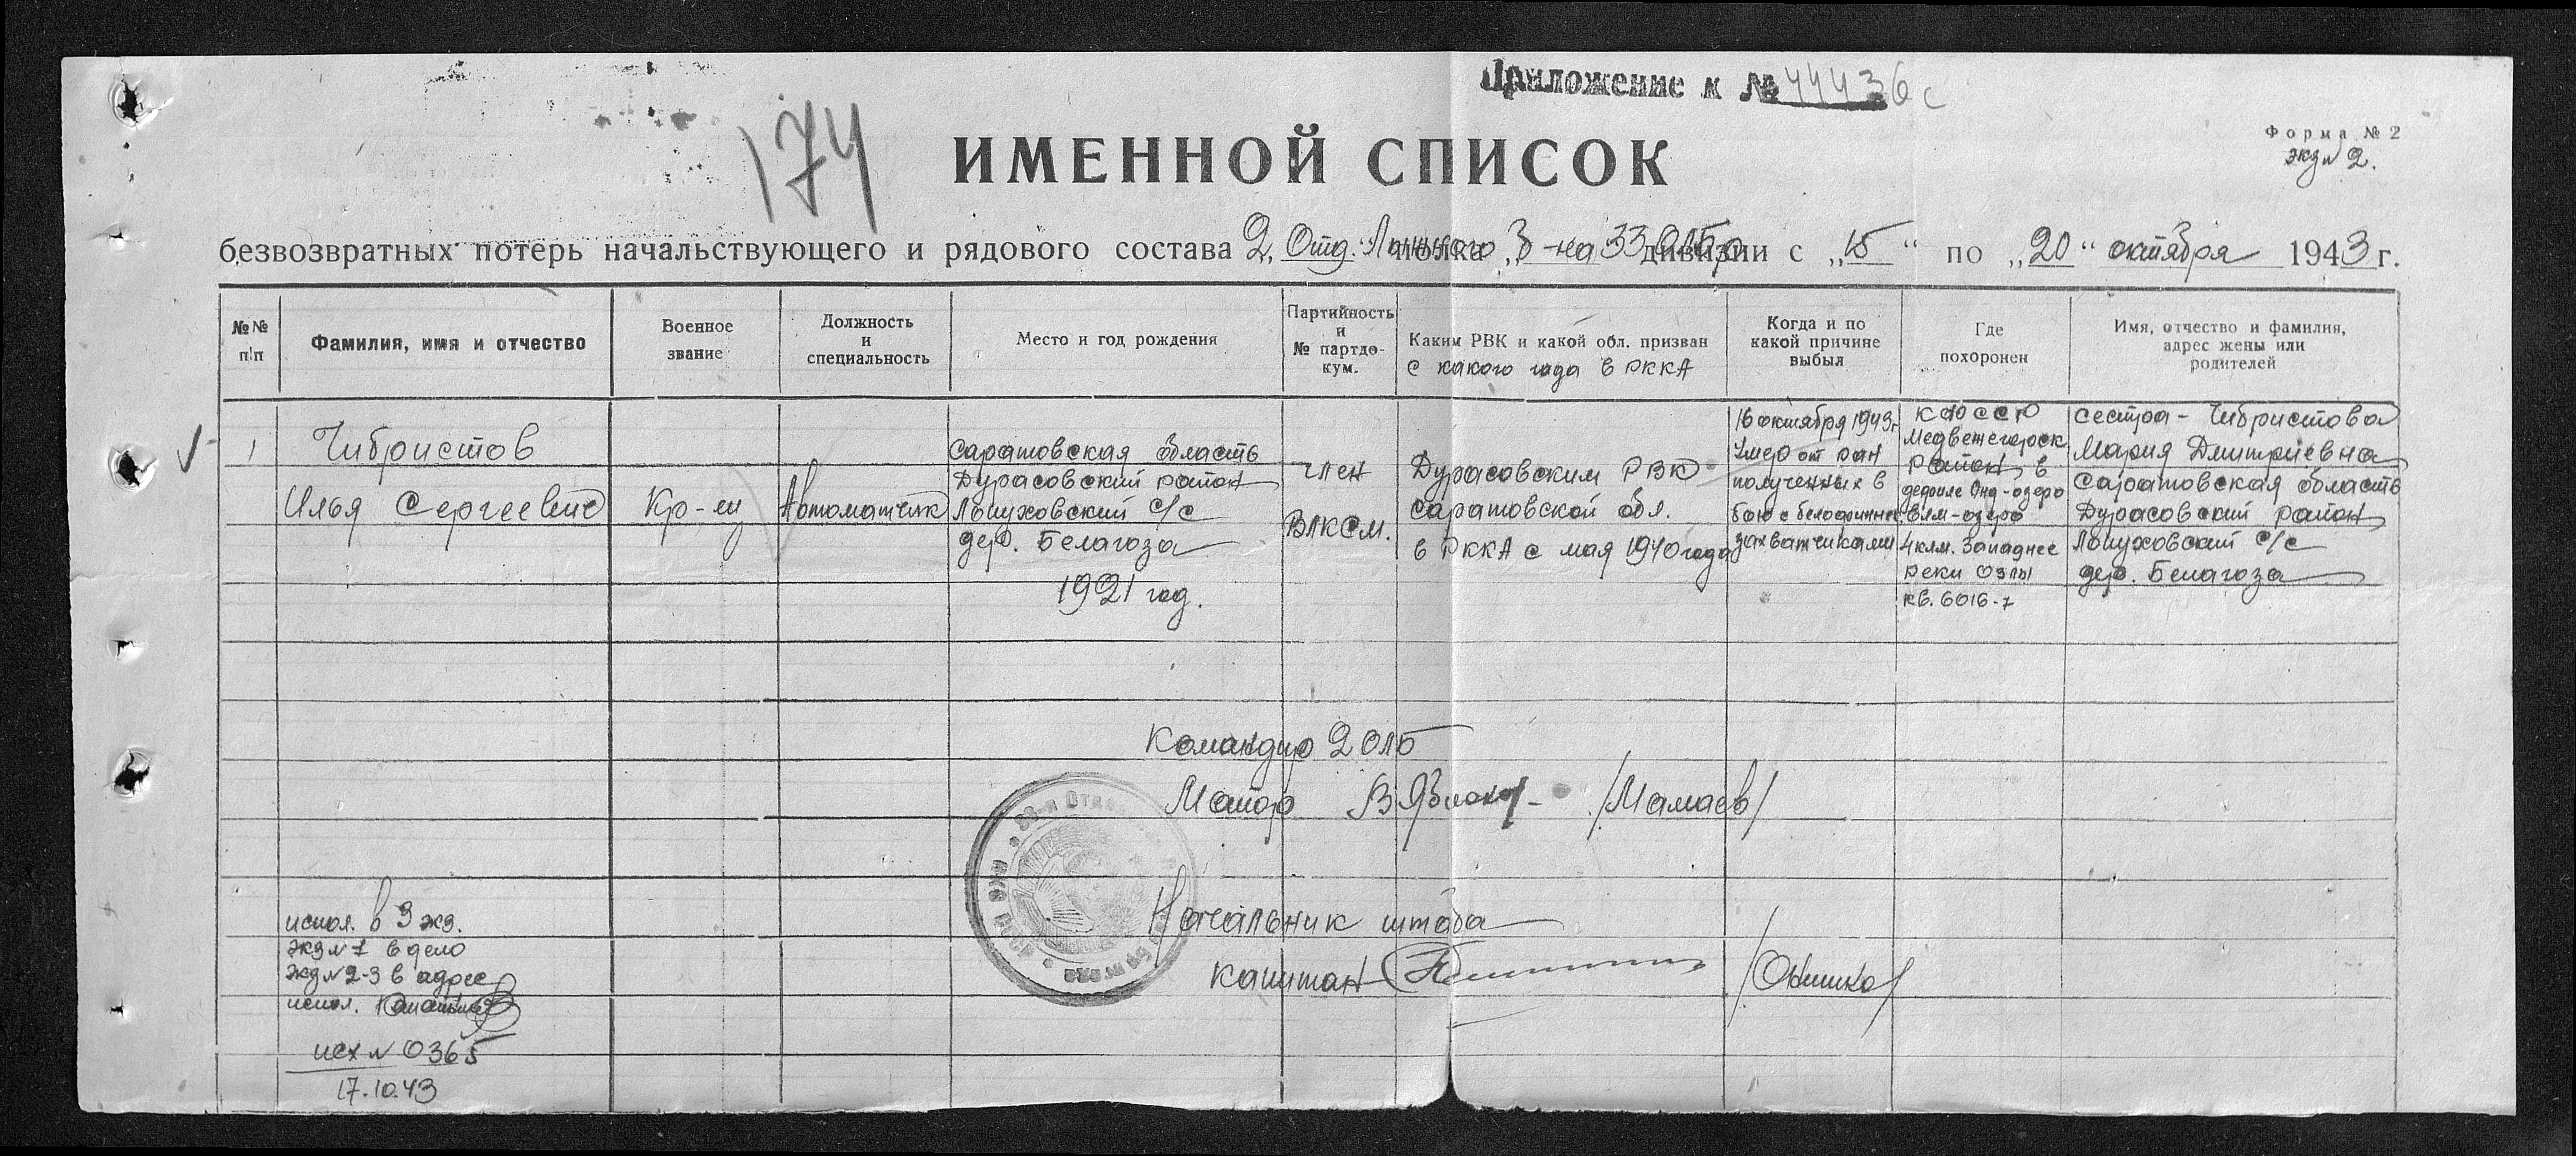 Приложение к № 44436с
174
Форма № 2
экз № 2.
ИМЕННОЙ СПИСОК
безвозвратных потерь начальствующего и рядового состава 2 Отд. Лыжного полка 3-на 33 ОЛБр дивизии с „15“ по „20“ октября 1943 г.
№№ п/п
Фамилия, имя и отчество
Военное звание
Должность и специальность
Место и год рождения
Партийность и № партдокум.
Каким РВК и какой обл. призван
с какого года в РККА
Когда и по какой причине выбыл
Где похоронен
Имя, отчество и фамилия, адрес жены или родителей
1
Чибристов
Илья Сергеевич
Кр-ец
Автоматчик
Саратовская область
Дурасовский район
Лопуховский с/с
дер. Белагоза
1921 год.
член
ВЛКСМ.
Дурасовским РВК
Саратовской обл.
в РККА с мая 1940 года
16 октября 1943г.
Умер от ран
полученных в
бою с белофинск.
захватчиками
КФССР
Медвежегорск
район, в
дефиле Онд-озеро
Вям-озеро
4 клм. Западнее
реки Озлы
кв. 6016-7
сестра - Чибристова
Мария Дмитриевна
Саратовская область
Дурасовский район
Лопуховский с/с
дер. Белагоза
Командир 2 ОЛБ
Майор /Мамаев/
Начальник штаба
капитан
испол. в 3 экз.
экз № 1 в дело
экз № 2-3 в адрес
испол.
исх № 0365
17.10.43